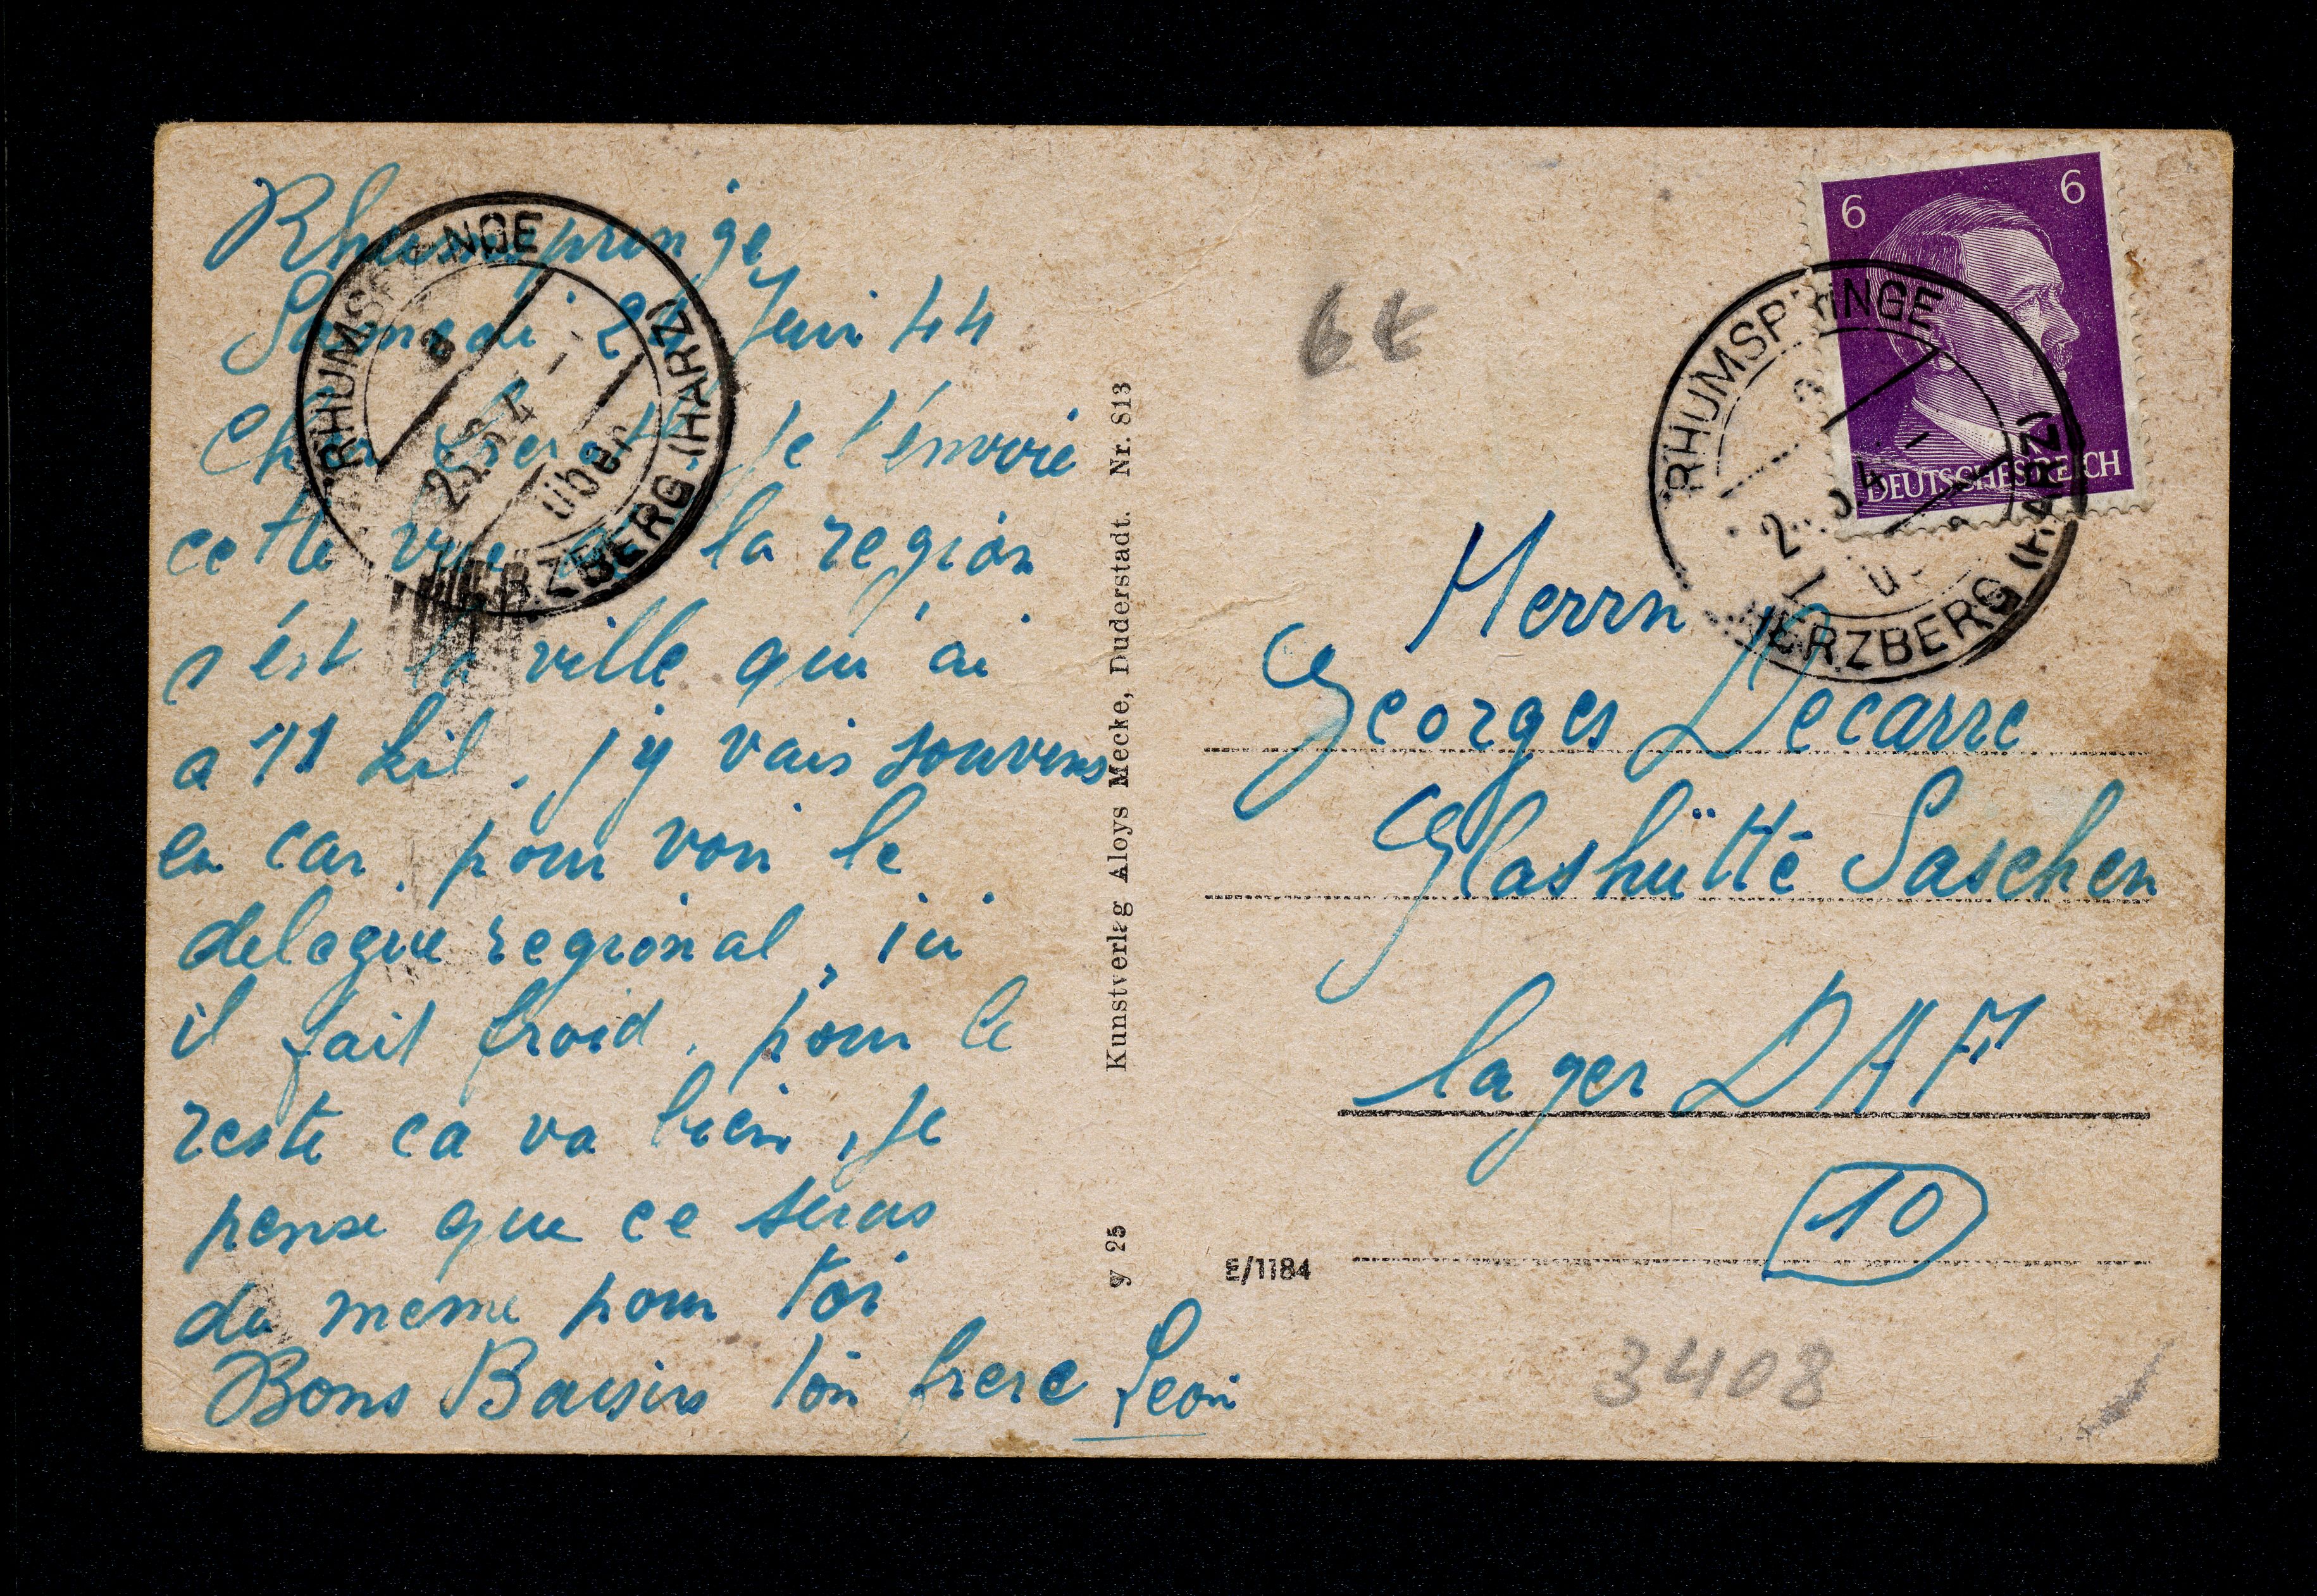 Rhumspringe
Samedi 24 Juin 44
Cher frerot. Je t'énvoie
cette vue de la region
s'ést la ville qui ai
a 11 kil. j'y vais souvens
en car, pour voir le
delegue regional, ici
il fait froid. pour le
reste ca va bien, je
pense que ce seras
de meme pour toi
Bons Baisirs ton frere Leon
RHUMSPRINGE
über
HERZBERG (HARZ)
Kunstverlag Aloys Mecke, Duderstadt. Nr. 813
g 25
E/1184
6 6
DEUTSCHES REICH
RHUMSPRINGE
HERZBERG (HARZ)
Herrn
Georges Decarre
Glashütte Saschen
lager DAF
10
3408